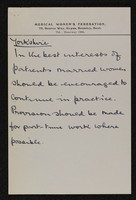 MEDICAL WOMEN'S FEDERATION,
Yorkshire
In the best interests of
patients married women
should be encouraged to
continue in practice.
Provision should be made
for part-time work where
possible